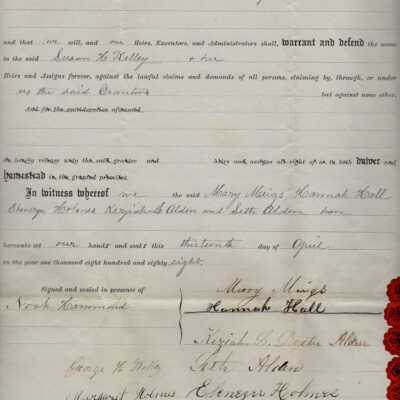 and that we will, and our Heirs, Executors, and Administrators shall, warrant and defend the same
to the said Susan H. Kelley & her
Heirs and Assigns forever, against the lawful claims and demands of all persons, claiming by, through, or under
us the said Grantors but against none other.
And for the consideration aforesaid
do hereby release unto the said grantee and heirs and assigns all right of or to both dower and
homestead in the granted premises.
In witness whereof we the said Mary Meigs Hannah Hall
Ebenezer Holmes Keziah Alden and Seth Alden have
hereunto set our hands and seals this thirteenth day of April
in the year one thousand eight hundred and eighty eight.
Signed and sealed in presence of
Noah Hammond
George H. Kelley
Margaret Holmes
Mary Meigs
Hannah Hall
Keziah Alden
Seth Alden
Ebenezer Holmes